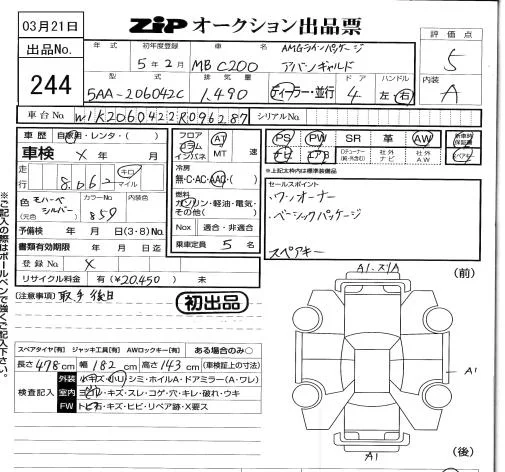 03月21日
ZIP オークション出品票
出品No.
244
評価点
5
内装
A
年式 初年度登録 車名
5年2月 MB C200 AMGラインパッケージ
アバンギャルド
型式 排気量 ドア ハンドル
5AA-206042C 1,490 ディーラー・並行 4 左・右
車台No. W1K2060422R096287 シリアルNo.
車歴 自家用・レンタ・( )
車検 X 年 月
走行 8,062 キロ マイル
色 モハーベシルバー (元色) カラーNo. 859 内装色
予備検 年 月 日(3・8)No.
書類有効期限 年 月 日迄
登録No. X
リサイクル料金 有(¥20,450) 未
フロア コラム インパネ AT MT 速
冷房
無・C・AC・AAC・( )
燃料
ガソリン・軽油・電気・その他( )
Nox 適合・非適合
乗車定員 5 名
PS PW SR 革 AW 新車時保証書
ナビ エアB 社外ナビ 社外A.W スペアキー
※上記太枠内は標準装備品
セールスポイント
・ワンオーナー
・ベーシックパッケージ
スペアキー
(注意事項) 取手後日
初出品
スペアタイヤ[有] ジャッキ工具[有] AWロックキー[有] ある場合のみ○
長さ 478 cm 幅 182 cm 高さ 143 cm (車検証上の寸法)
検査記入
外装 小キズ・小凹・シミ・ホイルA・ドアミラー(A・ワレ)
室内 ヨゴレ・キズ・スレ・コゲ・穴・キレ・破れ・ウキ
FW トビ石・キズ・ヒビ・リペア跡・X要ス
A1・スリA
(前)
A1
A1
(後)
※ご記入の際はボールペンで強くご記入下さい。